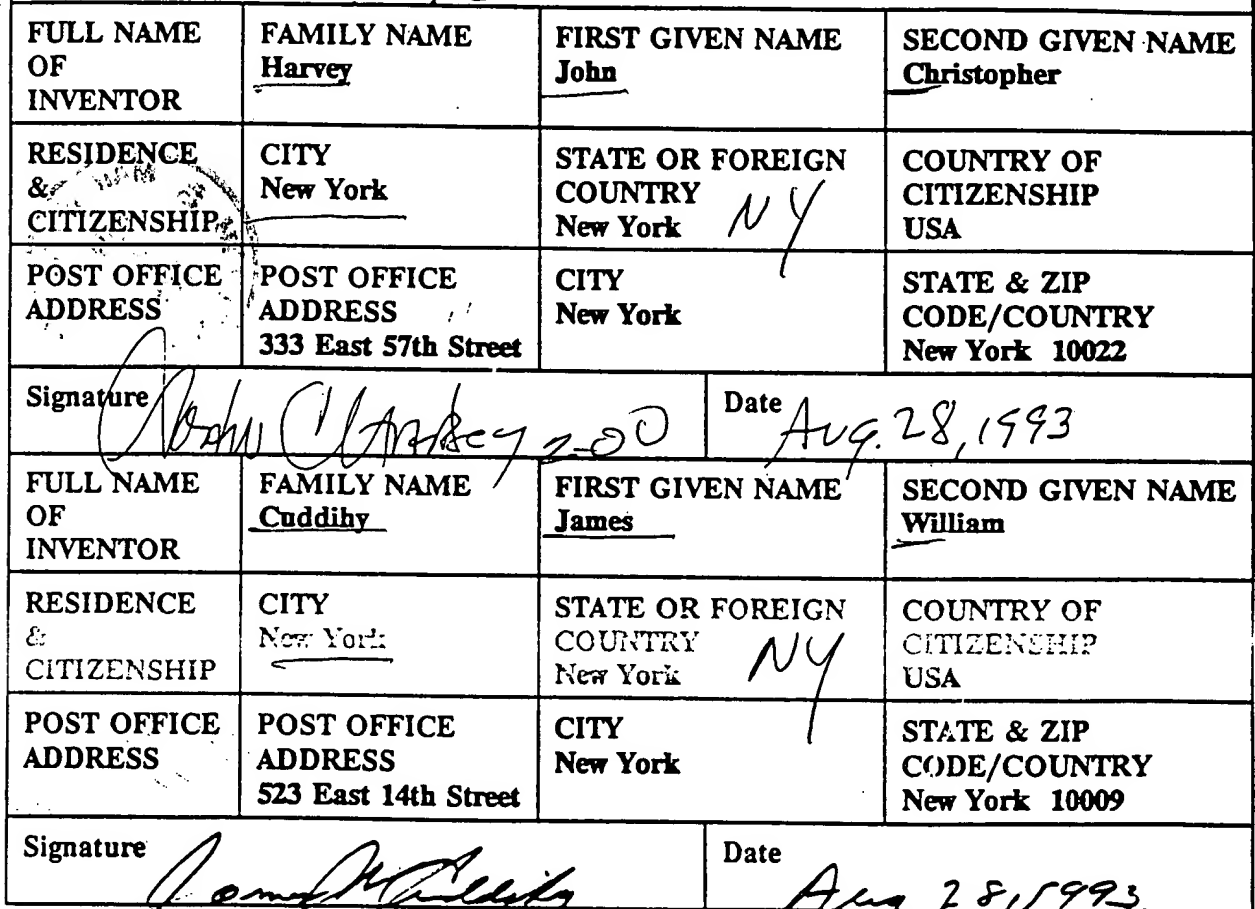 FULL NAME OF INVENTOR
FAMILY NAME
Harvey
FIRST GIVEN NAME
John
SECOND GIVEN NAME
Christopher
RESIDENCE & CITIZENSHIP
CITY
New York
STATE OR FOREIGN COUNTRY
New York NY
COUNTRY OF CITIZENSHIP
USA
POST OFFICE ADDRESS
POST OFFICE ADDRESS
333 East 57th Street
CITY
New York
STATE & ZIP CODE/COUNTRY
New York 10022
Signature John C Harvey 2-00
Date Aug. 28, 1993
FULL NAME OF INVENTOR
FAMILY NAME
Cuddihy
FIRST GIVEN NAME
James
SECOND GIVEN NAME
William
RESIDENCE & CITIZENSHIP
CITY
New York
STATE OR FOREIGN COUNTRY
New York NY
COUNTRY OF CITIZENSHIP
USA
POST OFFICE ADDRESS
POST OFFICE ADDRESS
523 East 14th Street
CITY
New York
STATE & ZIP CODE/COUNTRY
New York 10009
Signature James W Cuddihy
Date Aug 28, 1993